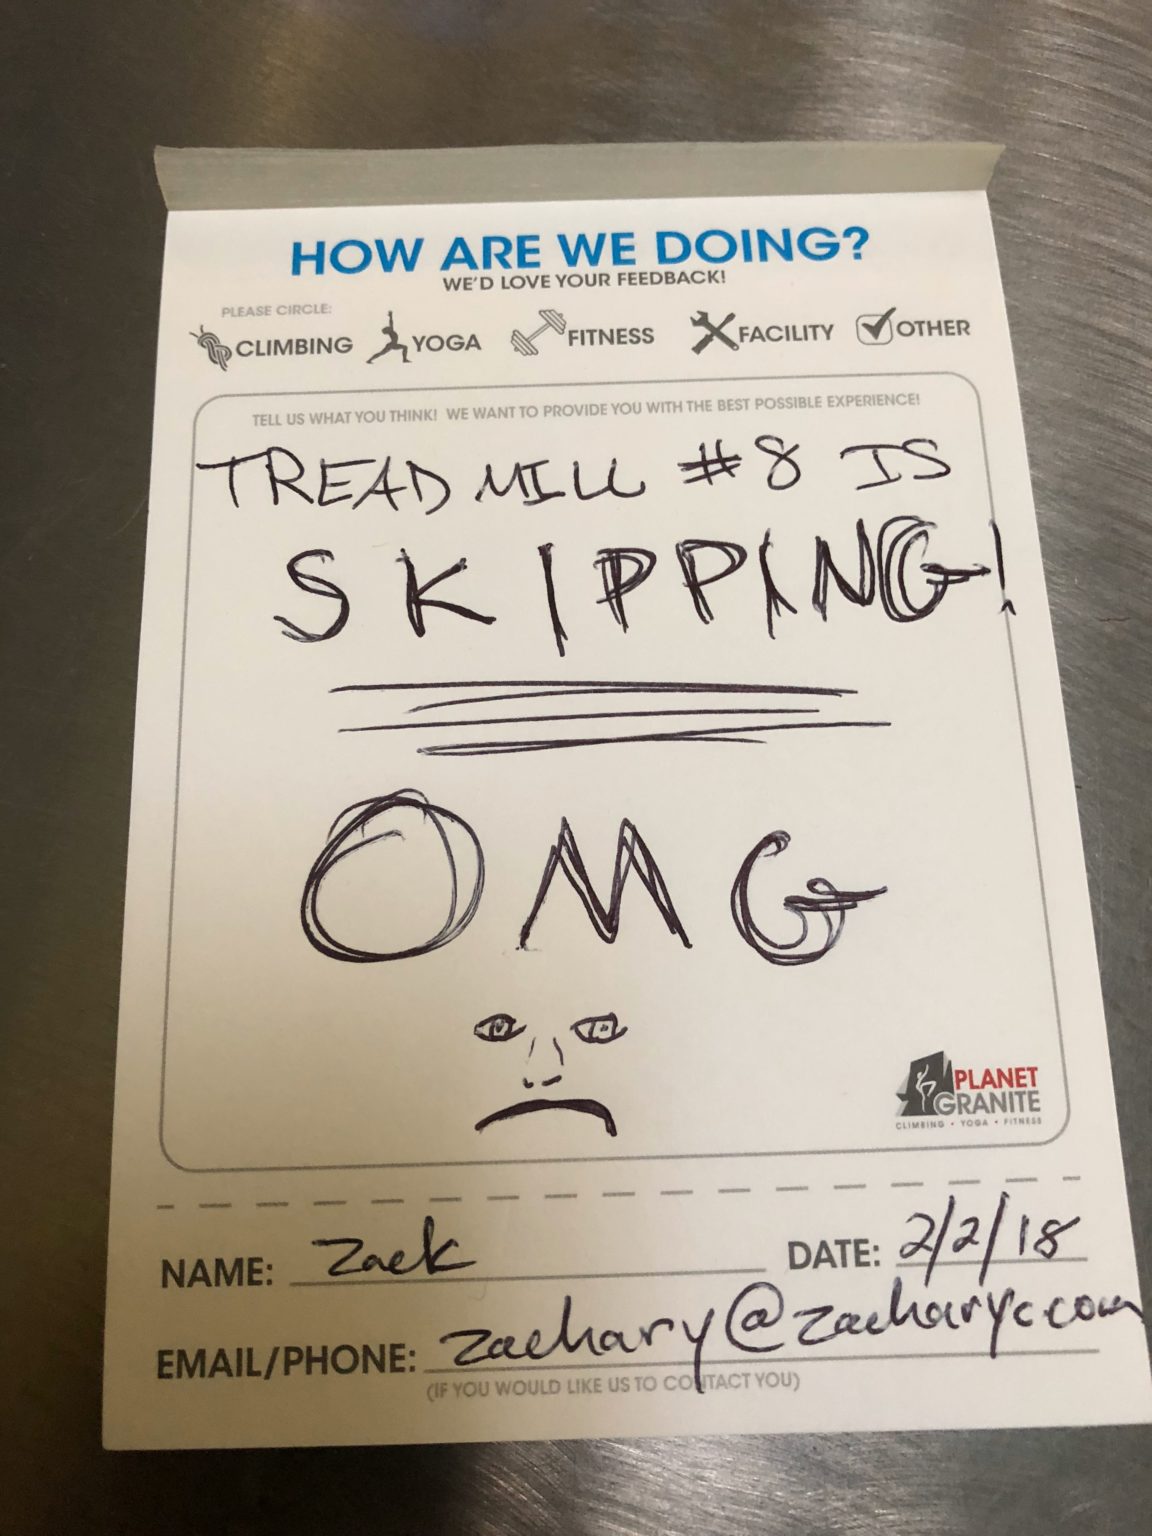 HOW ARE WE DOING?
WE'D LOVE YOUR FEEDBACK!
PLEASE CIRCLE:
CLIMBING YOGA FITNESS FACILITY OTHER
TELL US WHAT YOU THINK! WE WANT TO PROVIDE YOU WITH THE BEST POSSIBLE EXPERIENCE!
TREADMILL #8 IS
SKIPPING!
OMG
PLANET
GRANITE
CLIMBING • YOGA • FITNESS
NAME: Zack DATE: 2/2/18
EMAIL/PHONE: zachary@zacharyc.com
(IF YOU WOULD LIKE US TO CONTACT YOU)